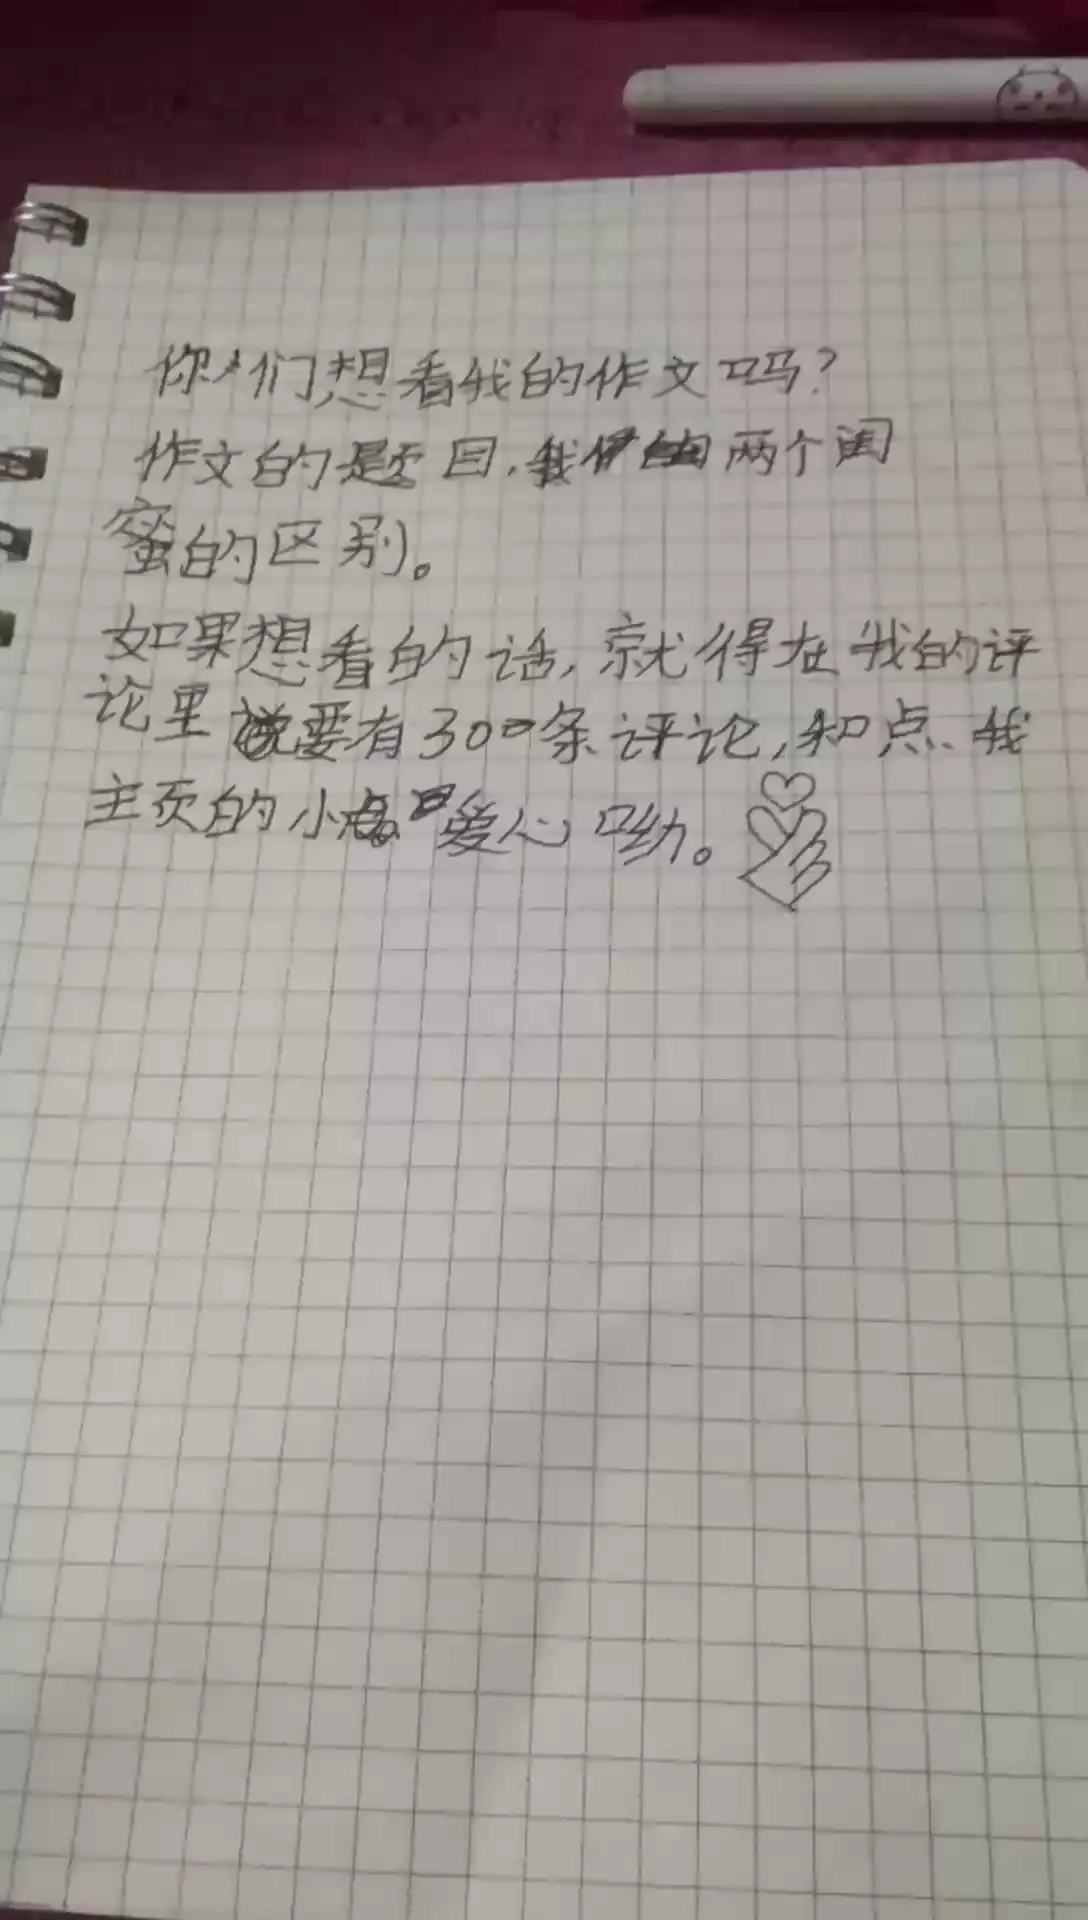 你们想看我的作文吗?
作文的题目,我的两个闺
蜜的区别。
如果想看的话,就得在我的评
论里说要有300条评论,和点我
主页的小爱心呦。